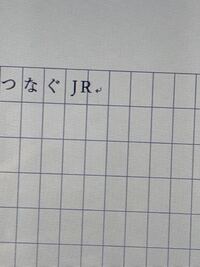 つなぐ JR↵